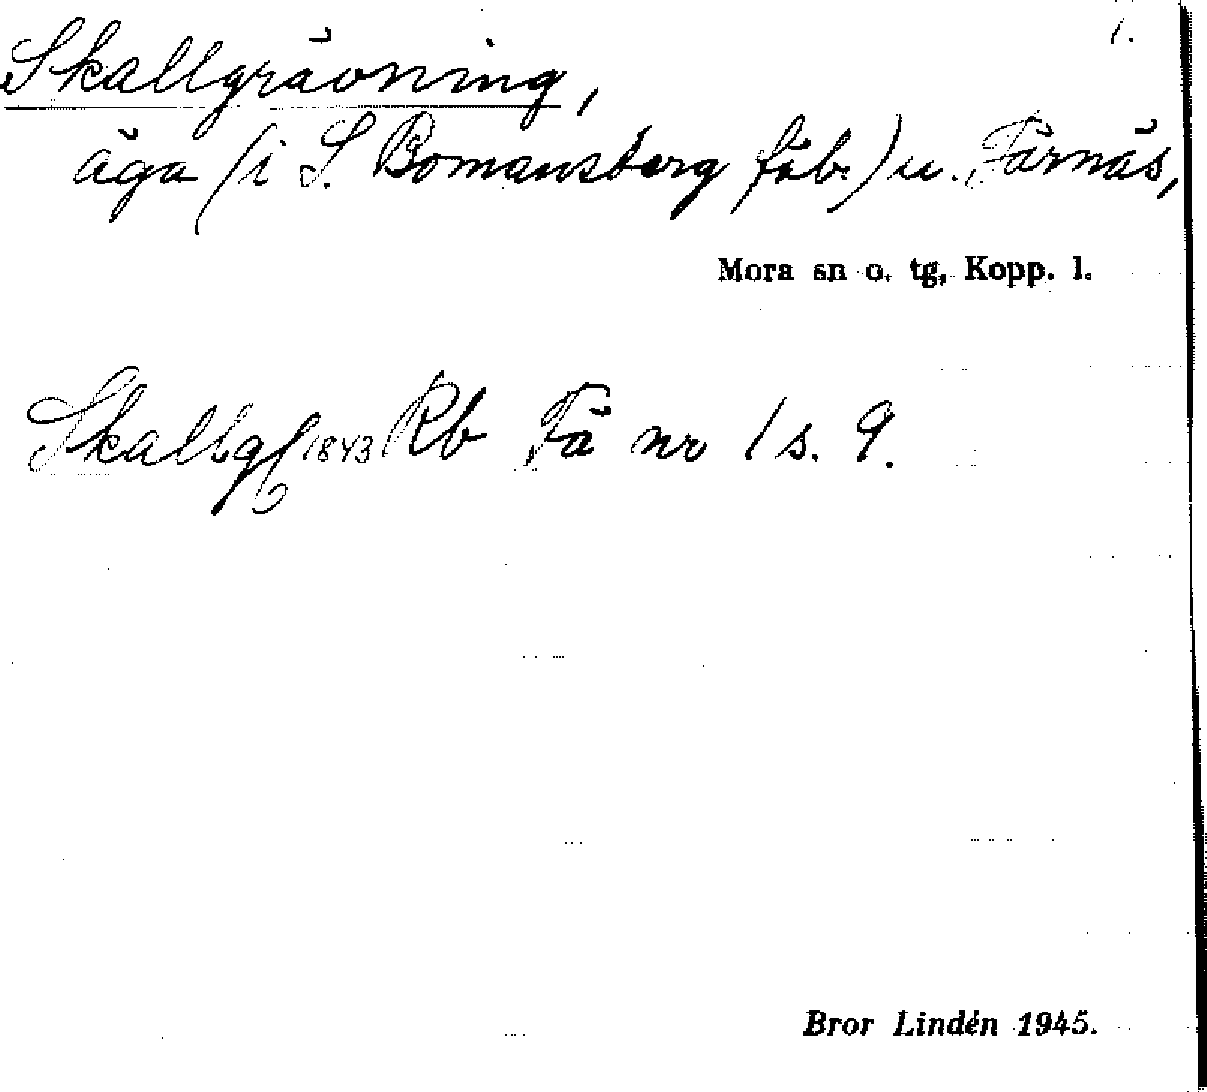 1.
Skallgrävning,
äga (i S. Bomansberg fäb.) u. Färnäs,
Mora sn o. tg, Kopp. l.
1843 Rb Fä nr 1 s. 9.
Bror Lindén 1945.